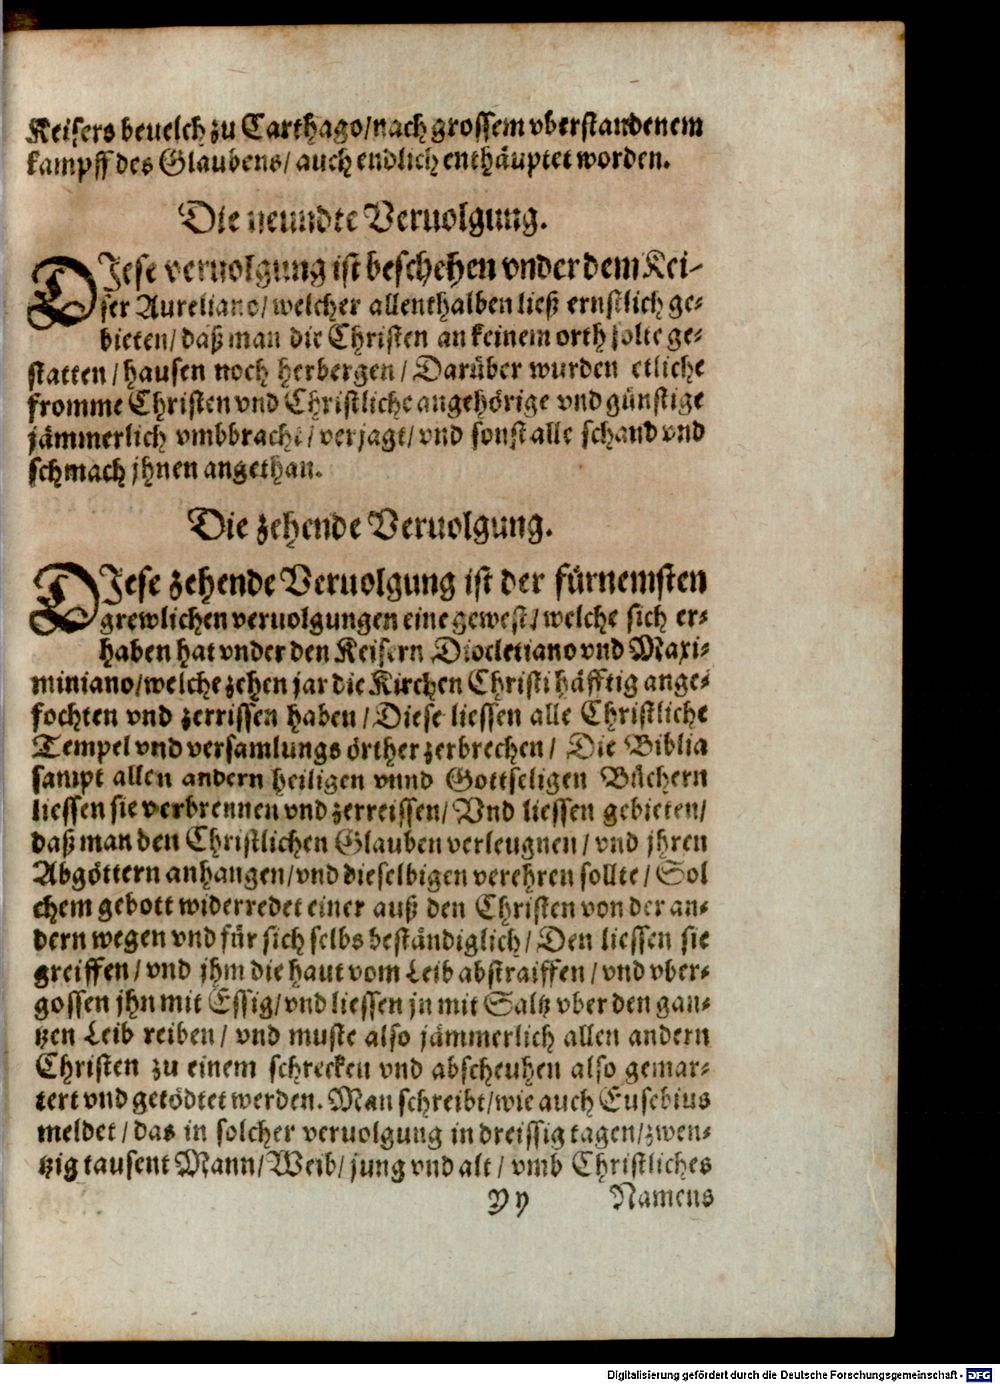 Keisers beuelch zu Carthago/nach grossem vberstandenem
kampff des Glaubens/ auch endlich enthäuptet worden.
Die neundte Veruolgung.
DIese veruolgung ist beschehen vnder dem Kei-
ser Aureliano/welcher allenthalben ließ ernstlich ge-
bieten/ daß man die Christen an keinem orth solte ge-
statten / hausen noch herbergen / Darüber wurden etliche
fromme Christen vnd Christliche angehörige vnd günstige
jämmerlich vmbbracht/ verjagt/ vnd sonst alle schand vnd
schmach jhnen angethan.
Die zehende Veruolgung.
DIese zehende Veruolgung ist der fürnemsten
grewlichen veruolgungen eine gewest/ welche sich er-
haben hat vnder den Keisern Diocletiano vnd Maxi-
miniano/welche zehen jar die Kirchen Christi häfftig ange-
fochten vnd zerrissen haben / Diese liessen alle Christliche
Tempel vnd versamlungs örther zerbrechen / Die Biblia
sampt allen andern heiligen vnnd Gottseligen Büchern
liessen sie verbrennen vnd zerreissen/ Vnd liessen gebieten/
daß man den Christlichen Glauben verleugnen / vnd jhren
Abgöttern anhangen/vnd dieselbigen verehren sollte/ Sol
chem gebott widerredet einer auß den Christen von der an-
dern wegen vnd für sich selbs beständiglich / Den liessen sie
greiffen / vnd jhm die haut vom Leib abstraiffen / vnd vber-
gossen jhn mit Essig/ vnd liessen jn mit Saltz vber den gan-
tzen Leib reiben / vnd muste also jämmerlich allen andern
Christen zu einem schrecken vnd abscheuhen also gemar-
tert vnd getödtet werden. Man schreibt/wie auch Eusebius
meldet / das in solcher veruolgung in dreissig tagen/zwen-
tzig tausent Mann/ Weib/ jung vnd alt / vmb Christliches
Yy Namens
Digitalisierung gefördert durch die Deutsche Forschungsgemeinschaft - DFG